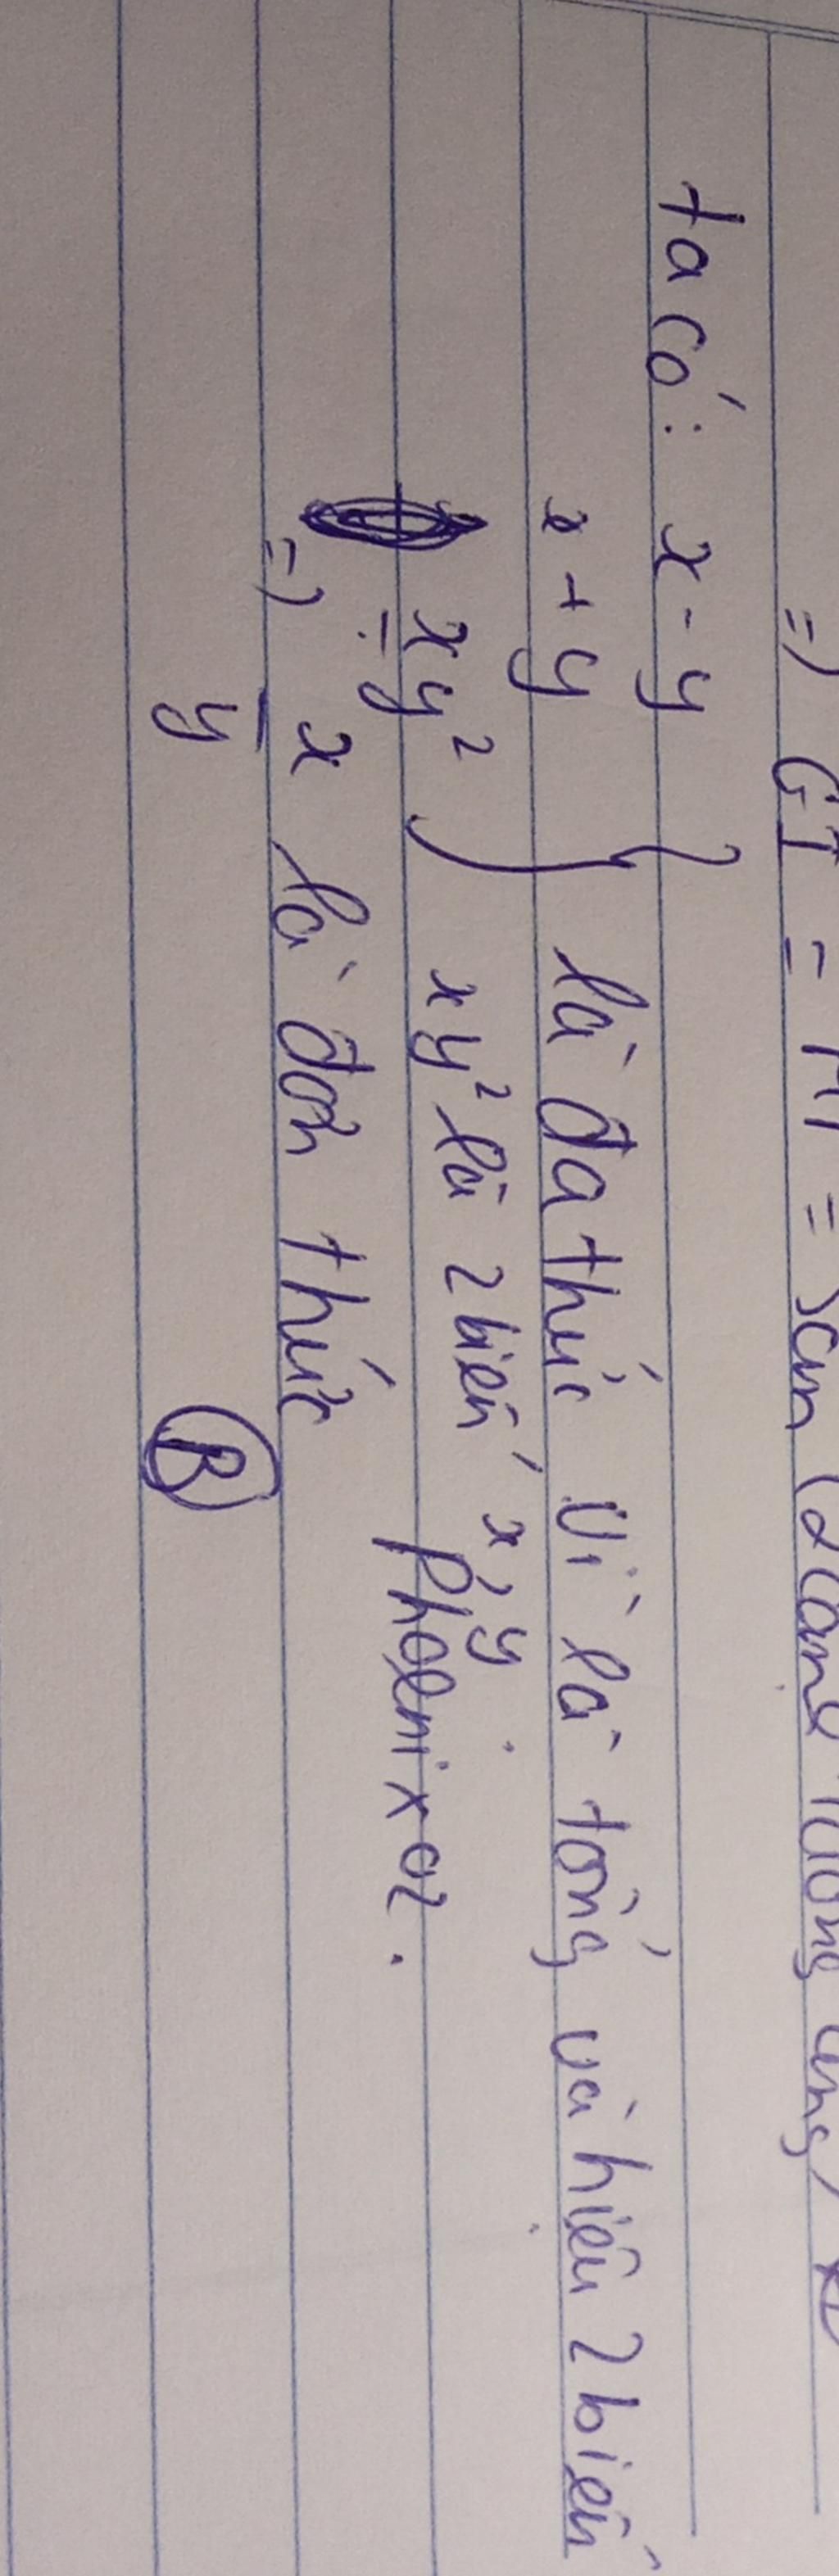 =) GI = MI = 5cm (2 cạnh tương ứng)
ta có: x - y
x + y } là đa thức vì là tổng và hiệu 2 biến
xy² xy² là 2 biến x, y
Phoenixoz.
=) x/y là đơn thức
B